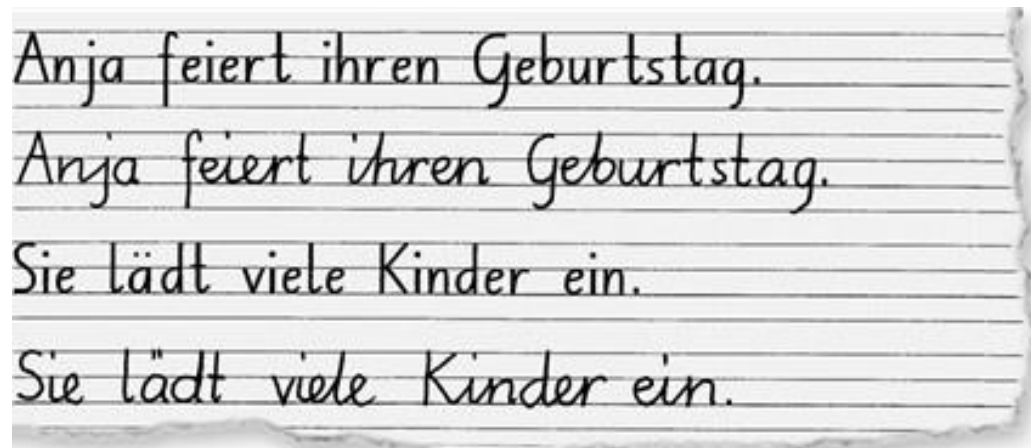 Anja feiert ihren Geburtstag.
Anja feiert ihren Geburtstag.
Sie lädt viele Kinder ein.
Sie lädt viele Kinder ein.